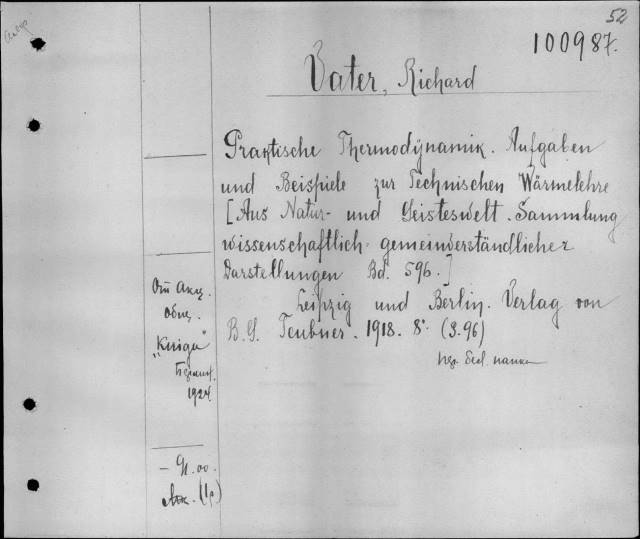 52
100987.
Vater, Richard
Praktische Thermodynamik. Aufgaben
und Beispiele zur Technischen Wärmelehre
[Aus Natur- und Geisteswelt. Sammlung
wissenschaftlich-gemeinverständlicher
Darstellungen Bd. 596.]
Leipzig und Berlin. Verlag von
B. G. Teubner. 1918. 8° (S. 96)
От Акц.
Общ.
"Книга"
1924